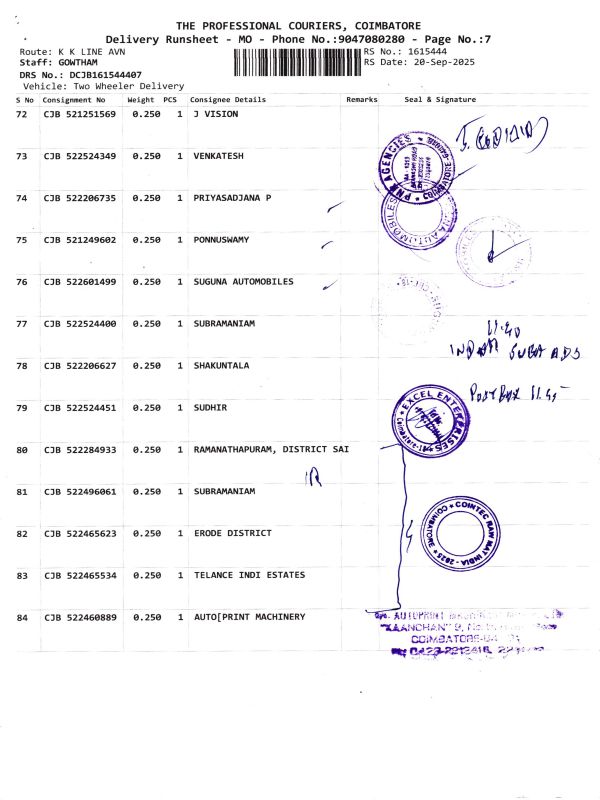 THE PROFESSIONAL COURIERS, COIMBATORE
Delivery Runsheet - MO - Phone No.:9047080280 - Page No.:7
Route: K K LINE AVN
RS No.: 1615444
Staff: GOWTHAM
RS Date: 20-Sep-2025
DRS No.: DCJB161544407
Vehicle: Two Wheeler Delivery
S No Consignment No Weight PCS Consignee Details Remarks Seal & Signature
72 CJB 521251569 0.250 1 J VISION
73 CJB 522524349 0.250 1 VENKATESH
PNR AGENCIES
74 CJB 522206735 0.250 1 PRIYASADJANA P
AUTOMOBILES
75 CJB 521249602 0.250 1 PONNUSWAMY
76 CJB 522601499 0.250 1 SUGUNA AUTOMOBILES
77 CJB 522524400 0.250 1 SUBRAMANIAM
11.40
78 CJB 522206627 0.250 1 SHAKUNTALA
79 CJB 522524451 0.250 1 SUDHIR
EXCEL ENTERPRISES
80 CJB 522284933 0.250 1 RAMANATHAPURAM, DISTRICT SAI
81 CJB 522496061 0.250 1 SUBRAMANIAM
COINTEC RAW MAT INDIA - 2025 * COIMBATORE *
82 CJB 522465623 0.250 1 ERODE DISTRICT
83 CJB 522465534 0.250 1 TELANCE INDI ESTATES
84 CJB 522460889 0.250 1 AUTO[PRINT MACHINERY
"KAANCHAN" 9,
COIMBATORE
0422-2213418,